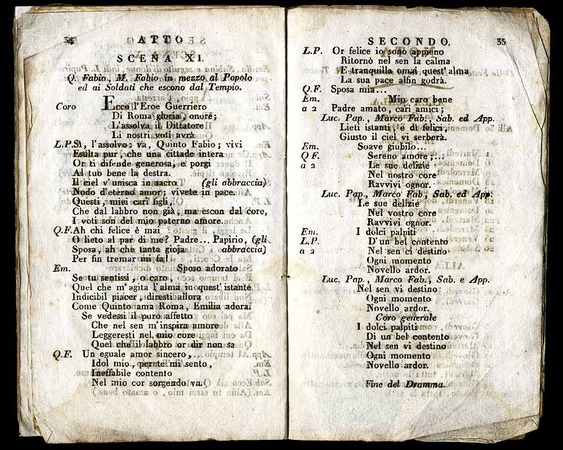 34 ATTO
SCENA XI.
Q. Fabio, M. Fabio in mezzo al Popolo
ed ai Soldati che escono dal Tempio.
Coro Ecco l'Eroe Guerriero
Di Roma gloria, onore;
L'assolva il Dittatore
Li nostri voti avrà
L.P. Sì, l'assolvo; va, Quinto Fabio; vivi
Esulta pur, che una cittade intera
Or ti difende generosa, e porgi
Al tuo bene la destra.
Il ciel v'unisca in sacro (gli abbraccia)
Nodo d'eterno amor; vivete in pace.
Questi, miei cari figli,
Che dal labbro non già, ma escon dal core,
I voti son del mio paterno amore.
Q.F. Ah chi felice è mai
O lieto al par di me? Padre... Papirio, (gli
Sposa, ah che tanta gioja abbraccia)
Per fin tremar mi fa!
Em. Sposo adorato
Se tu sentissi, o caro,
Quel che m'agita l'alma in quest'istante
Indicibil piacer, diresti allora
Come Quinto ama Roma, Emilia adora.
Se vedessi il puro affetto
Che nel sen m'inspira amore
Leggeresti nel mio core
Quel che il labbro or dir non sa
Q.F. Un eguale amor sincero,
Idol mio, per te mi sento,
Ineffabile contento
Nel mio cor sorgendo va.
SECONDO. 35
L.P. Or felice io sono appieno
Ritornò nel sen la calma
E tranquilla omai quest'alma
La sua pace alfin godrà.
Q.F. Sposa mia...
Em. Mio caro bene
a 2 Padre amato, cari amici;
Luc. Pap., Marco Fab., Sab. ed App.
Lieti istanti, e dì felici,
Giusto il ciel vi serberà.
Em. Soave giubilo...
Q F. Sereno amore;...
a 2 Le sue delizie
Nel nostro core
Ravvivi ognor.
Luc. Pap., Marco Fab., Sab. ed App.
Le sue delizie
Nel vostro core
Ravvivi ognor.
Em. I dolci palpiti
L.P. D'un bel contento
a 2 Nel sen ci destino
Ogni momento
Novello ardor.
Luc. Pap., Marco Fab., Sab. e App.
Nel sen vi destino
Ogni momento
Novello ardor.
Coro generale
I dolci palpiti
Di un bel contento
Nel sen vi destino
Ogni momento
Novello ardor.
Fine del Dramma.